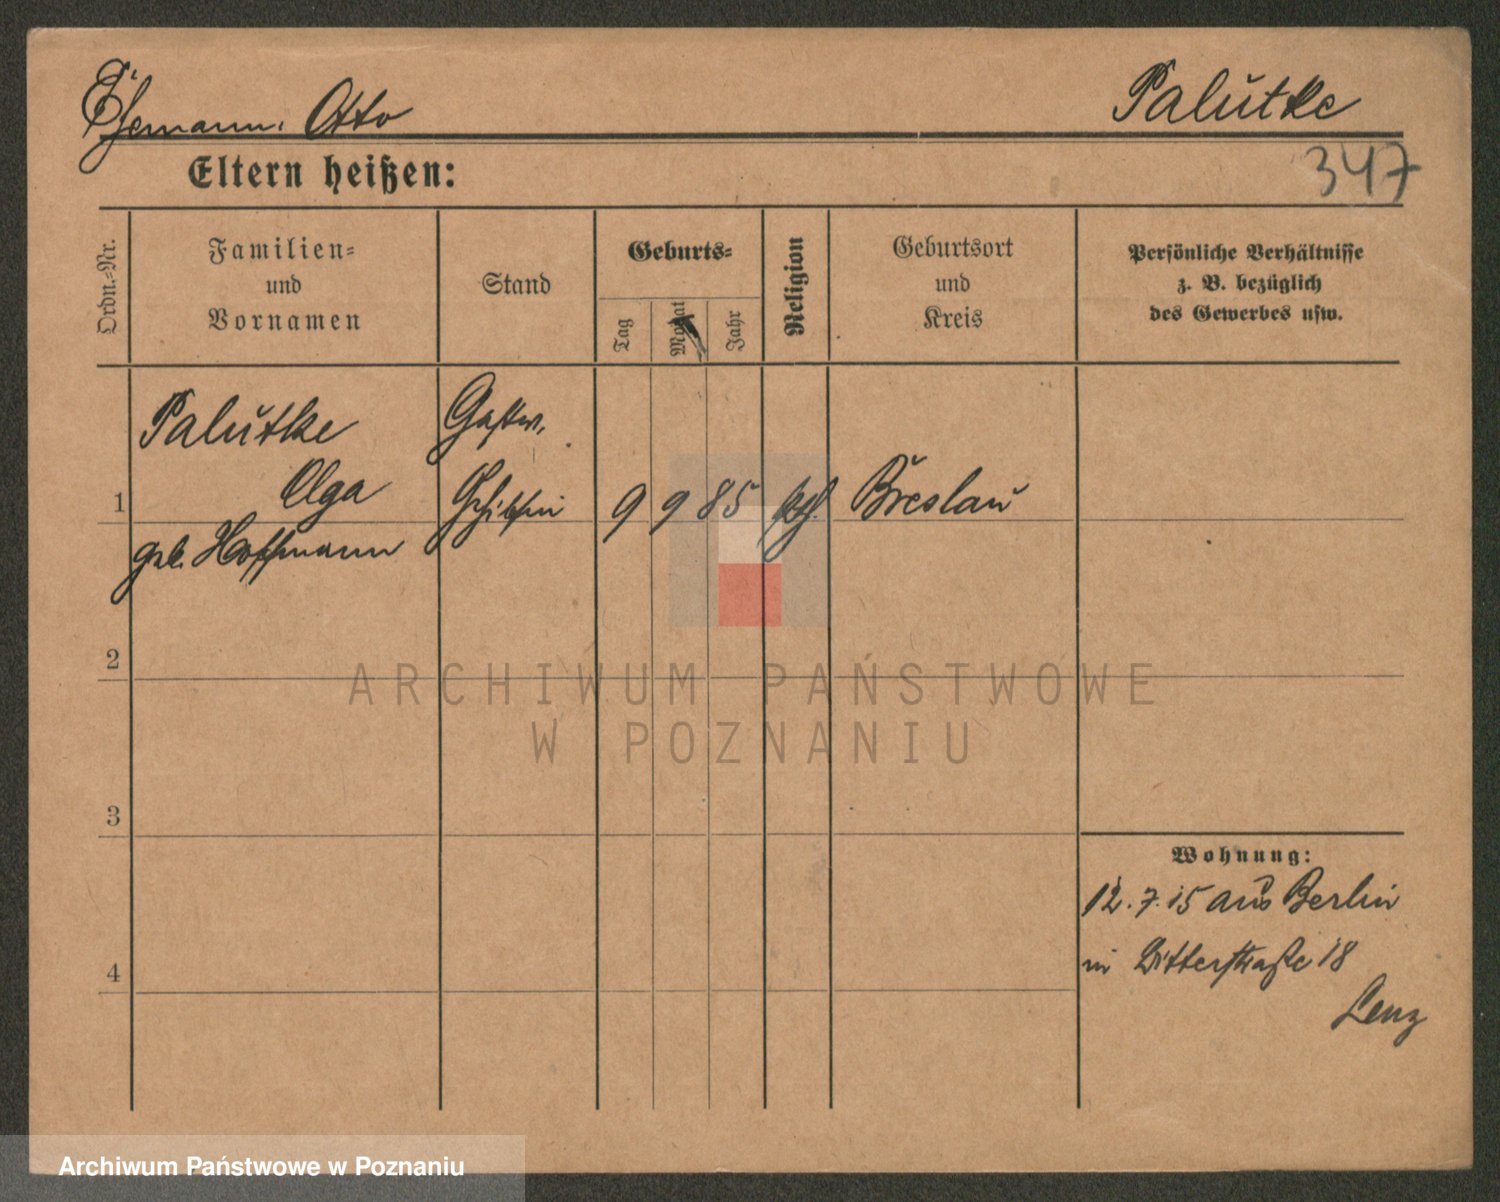 Ehemann: Otto
Palutke
Eltern heißen:
347
Ordn.=Nr.
Familien=
und
Vornamen
Stand
Geburts=
Tag
Monat
Jahr
Religion
Geburtsort
und
Kreis
Persönliche Verhältnisse
z. B. bezüglich
des Gewerbes usw.
1
Palutke
Olga
geb. Hoffmann
Gastw.
Gehilfin
9 9 85
kth.
Breslau
2
3
4
Wohnung:
12.7.15 aus Berlin
in Ritterstraße 18
Lenz
ARCHIWUM PAŃSTWOWE
W POZNANIU
Archiwum Państwowe w Poznaniu